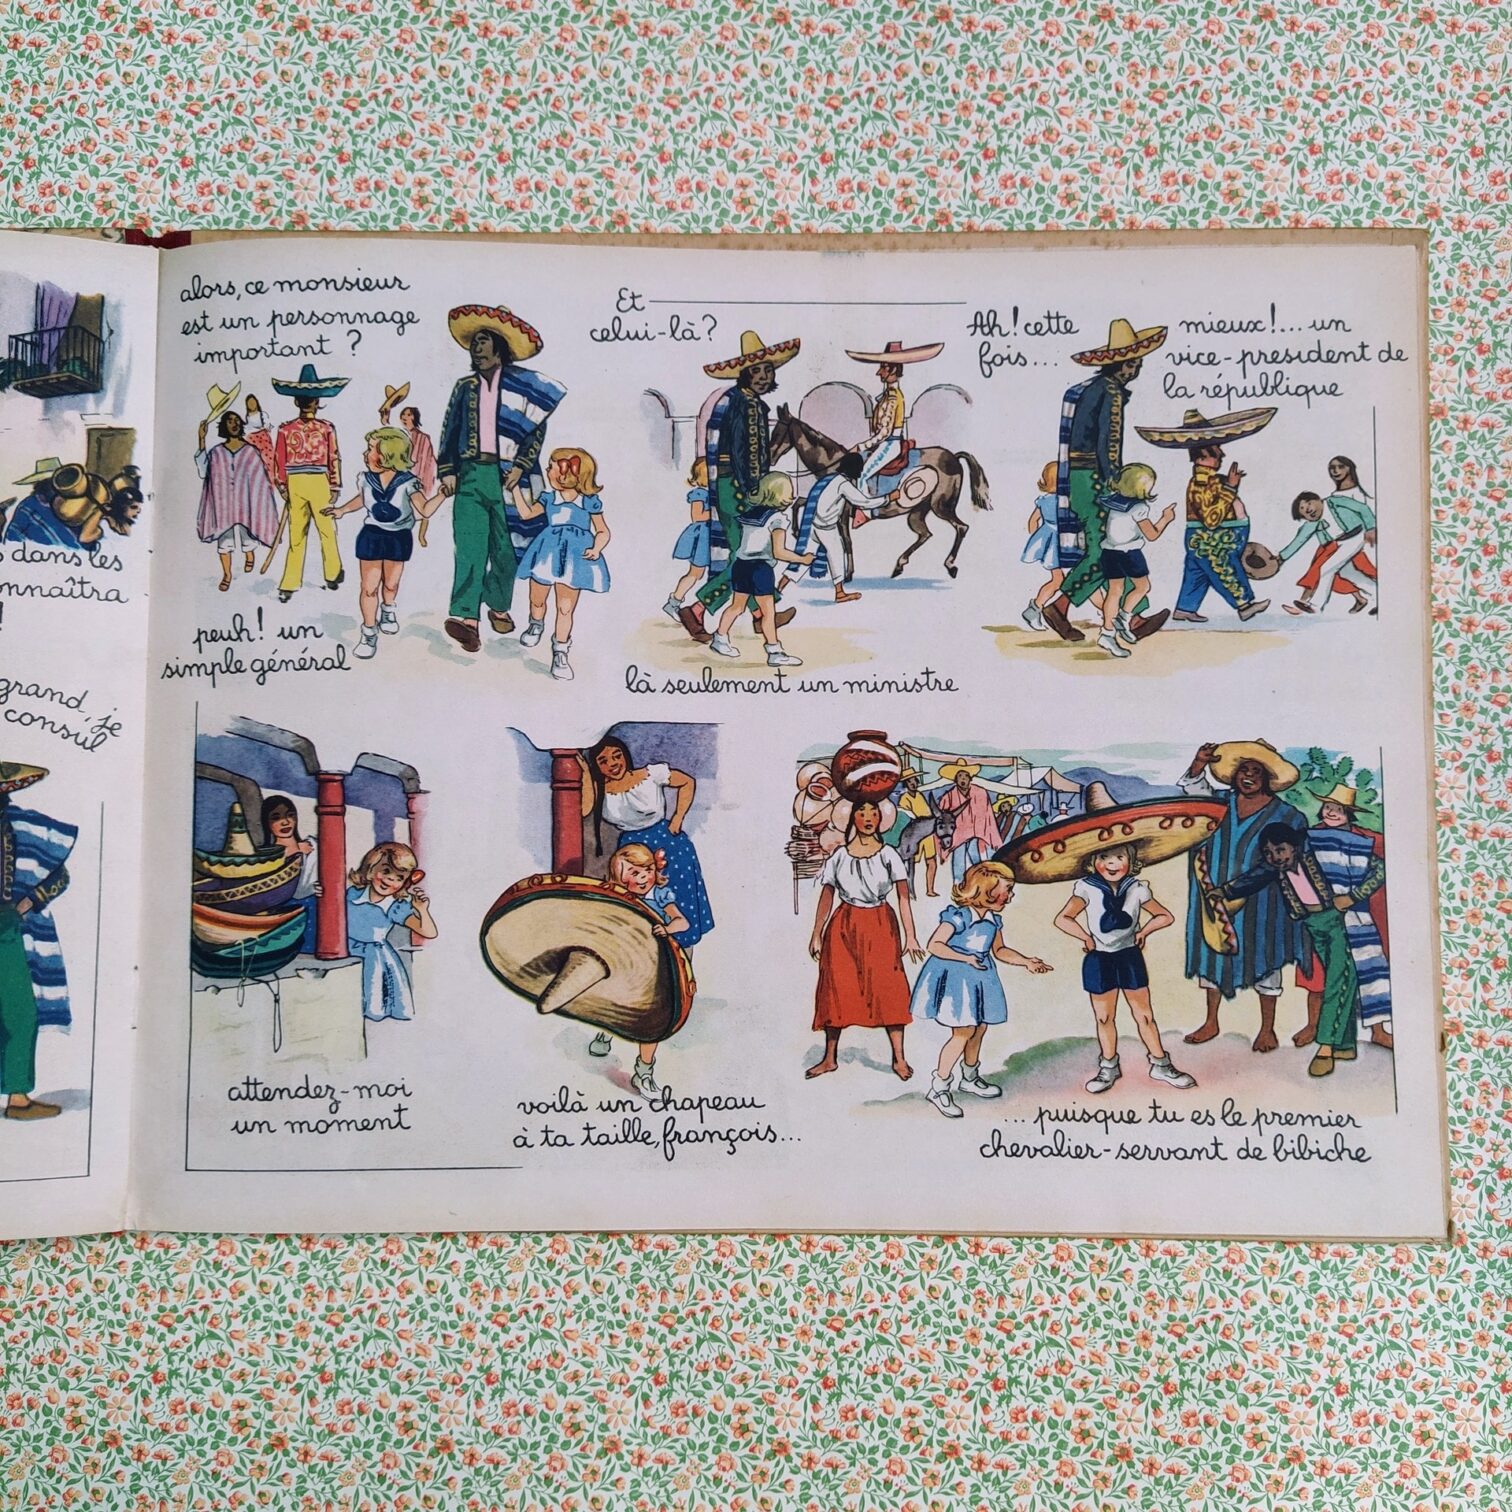 dans les
onnaîtra
!
grand, je
consul
alors, ce monsieur
est un personnage
important ?
peuh! un
simple général
Et
celui-là?
là seulement un ministre
Ah! cette
fois...
mieux!... un
vice-president de
la république
attendez-moi
un moment
voilà un chapeau
à ta taille, françois...
... puisque tu es le premier
chevalier-servant de bibiche